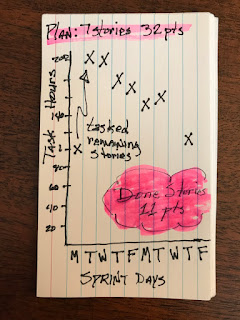 PLAN: 7 stories 32 pts
Task Hours
200
140
80
60
40
20
tasked
remaining
stories
Done Stories
11 pts
M T W T F M T W T F
SPRINT DAYS